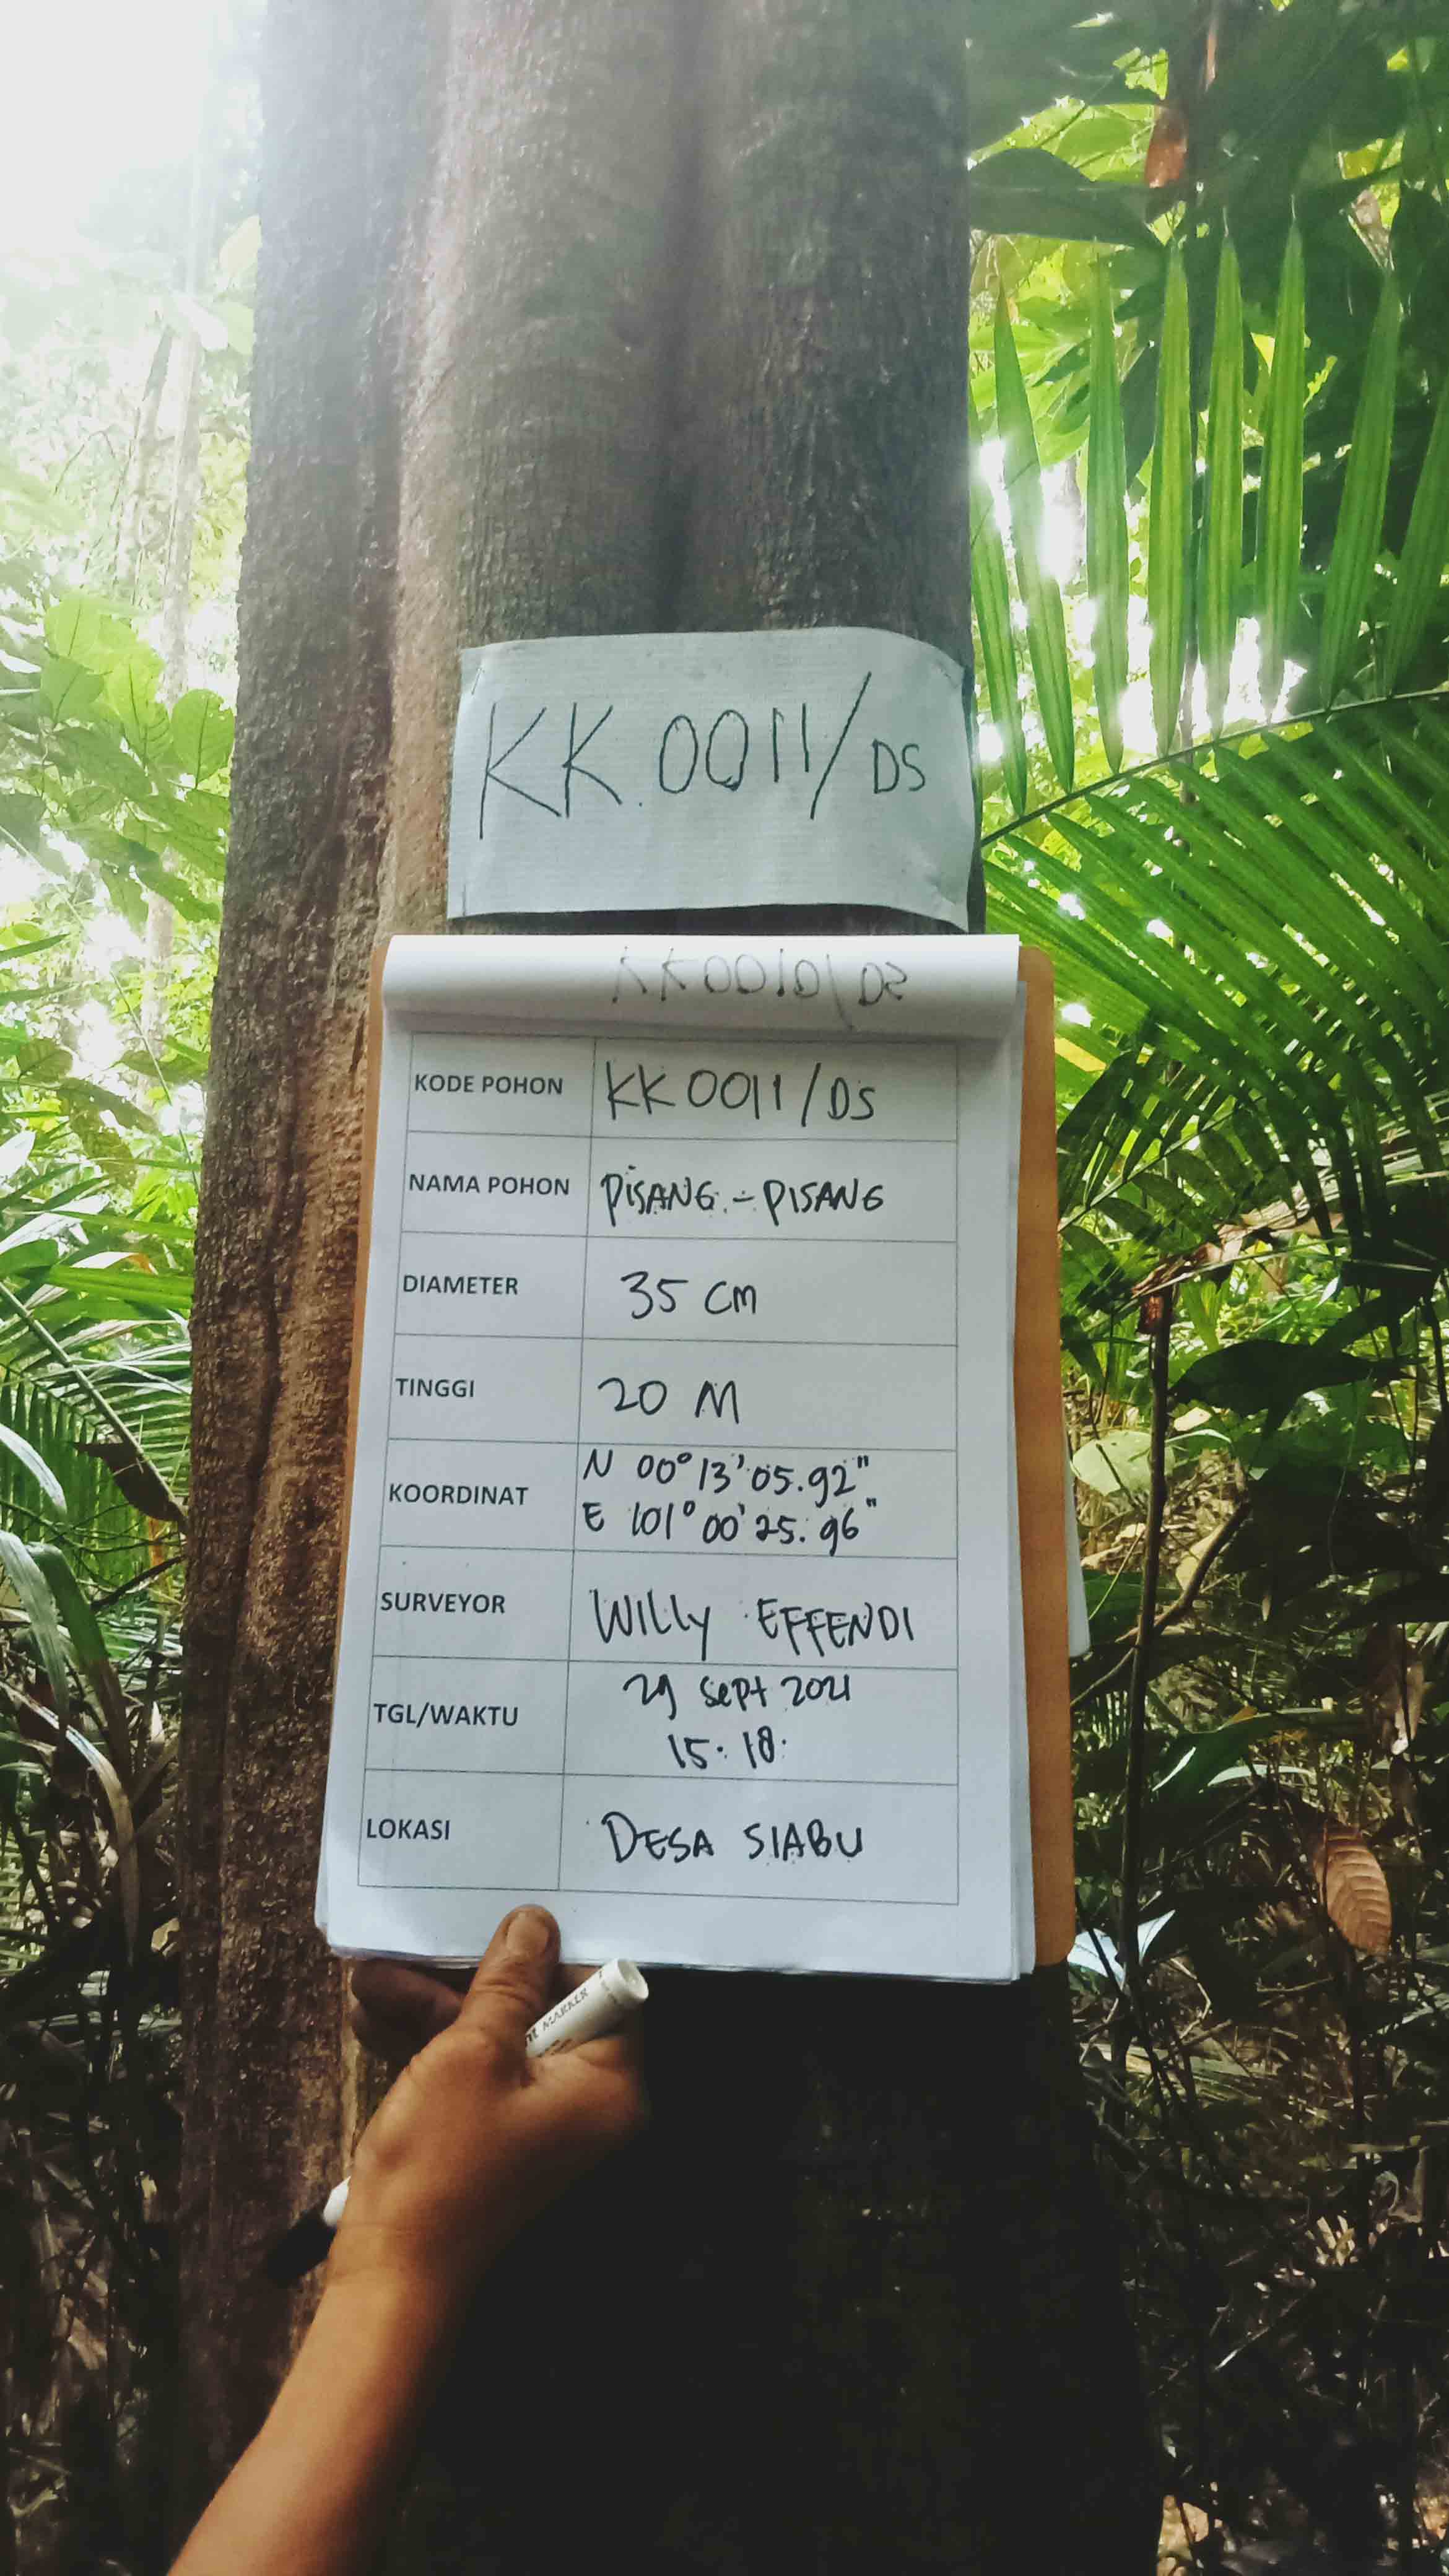 KK.0011/DS
KK0010/DS
KODE POHON KK0011/DS
NAMA POHON PISANG-PISANG
DIAMETER 35 CM
TINGGI 20 M
KOORDINAT N 00°13'05.92"
E 101°00'25.96"
SURVEYOR WILLY EFFENDI
TGL/WAKTU 29 Sept 2021
15:18
LOKASI DESA SIABU
MARKER